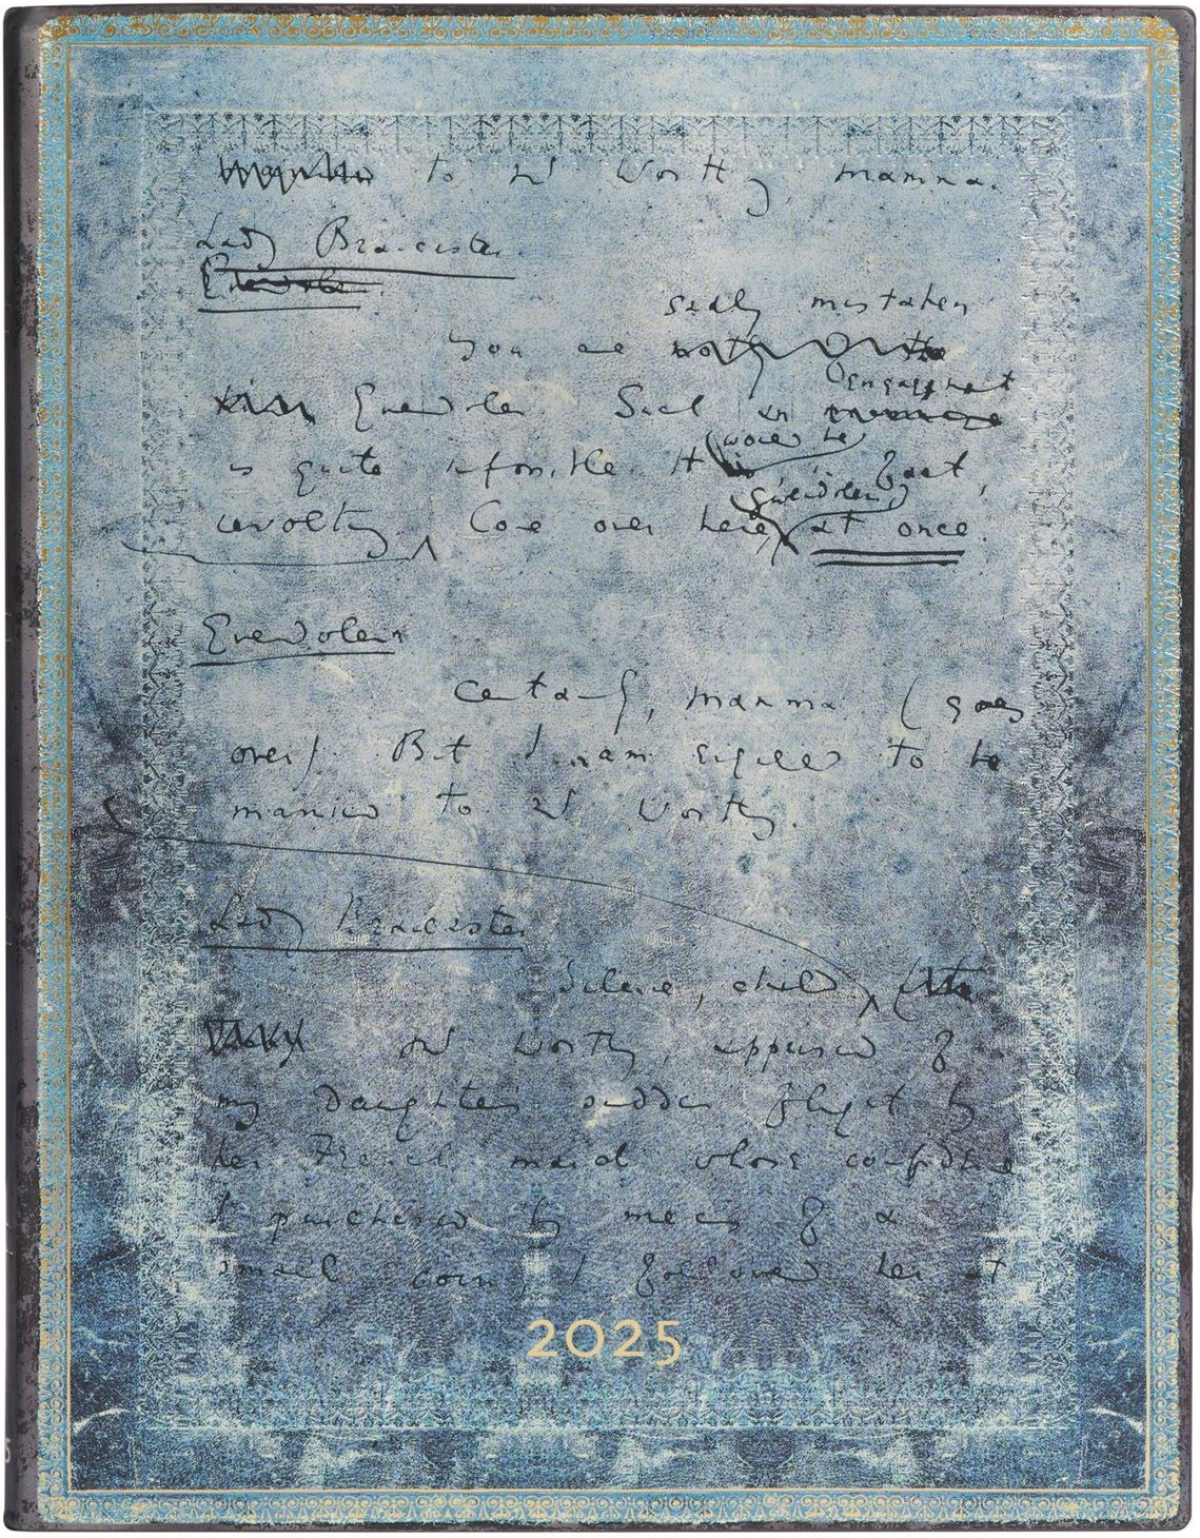 to Mr Worthing, mamma.
Lady Brancaster.
Gwendolen.
sadly mistaken
You are not
engagement
Gwendolen Such an marriage
(would be)
is quite impossible. It is in fact,
(Gwendolen)
revolting Come over here, at once.
Gwendolen
Certainly, mamma (goes
over). But I am engaged to be
married to Mr Worthing.
Lady Brancaster
Silence, child, (
Mr Worthing, apprised of
my daughter's sudden flight by
her French maid whose confidence
I purchased by means of a
small coin, I followed her at
2025
5